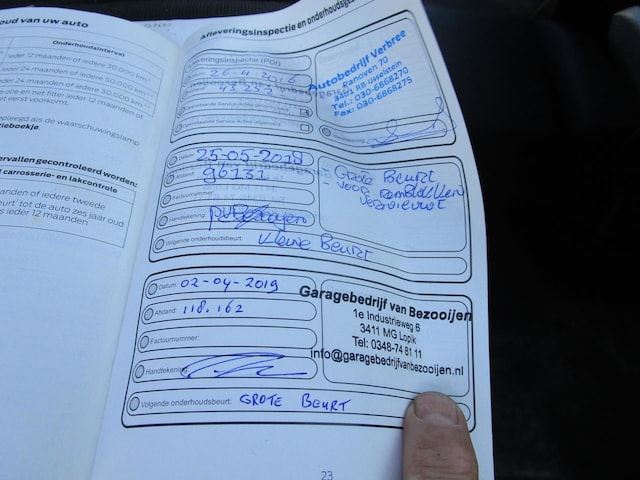 oud van uw auto
Onderhoudsinterval
ieder 12 maanden of iedere 30.000 km
ieder 24 maanden of iedere 50.000 km
der 24 maanden of iedere 30.000 km
e olie en het filter ieder 12 maanden of
et eerst voorkomt.
epleegd als de waarschuwingslamp
tieboekje.
ervallen gecontroleerd worden:
carrosserie- en lakcontrole
anden of iedere tweede
eurt' tot de auto zes jaar oud
s ieder 12 maanden
Afleveringsinspectie en
26-4-2016
43252
Autobedrijf Verbree
Ranoven 70
3401 RB IJsselstein
Tel.: 030-6868270
Fax: 030-6868275
Datum: 25-05-2018
Afstand: 96131
Factuurnummer:
Handtekening:
Volgende onderhoudsbeurt: Kleine Beurt
Grote Beurt
- voor remblokken
vernieuwt
Datum: 02-04-2019
Afstand: 118.162
Factuurnummer:
Handtekening:
Volgende onderhoudsbeurt: GROTE BEURT
Garagebedrijf van Bezooijen
1e Industrieweg 6
3411 MG Lopik
Tel: 0348-74 81 11
info@garagebedrijfvanbezooijen.nl
23